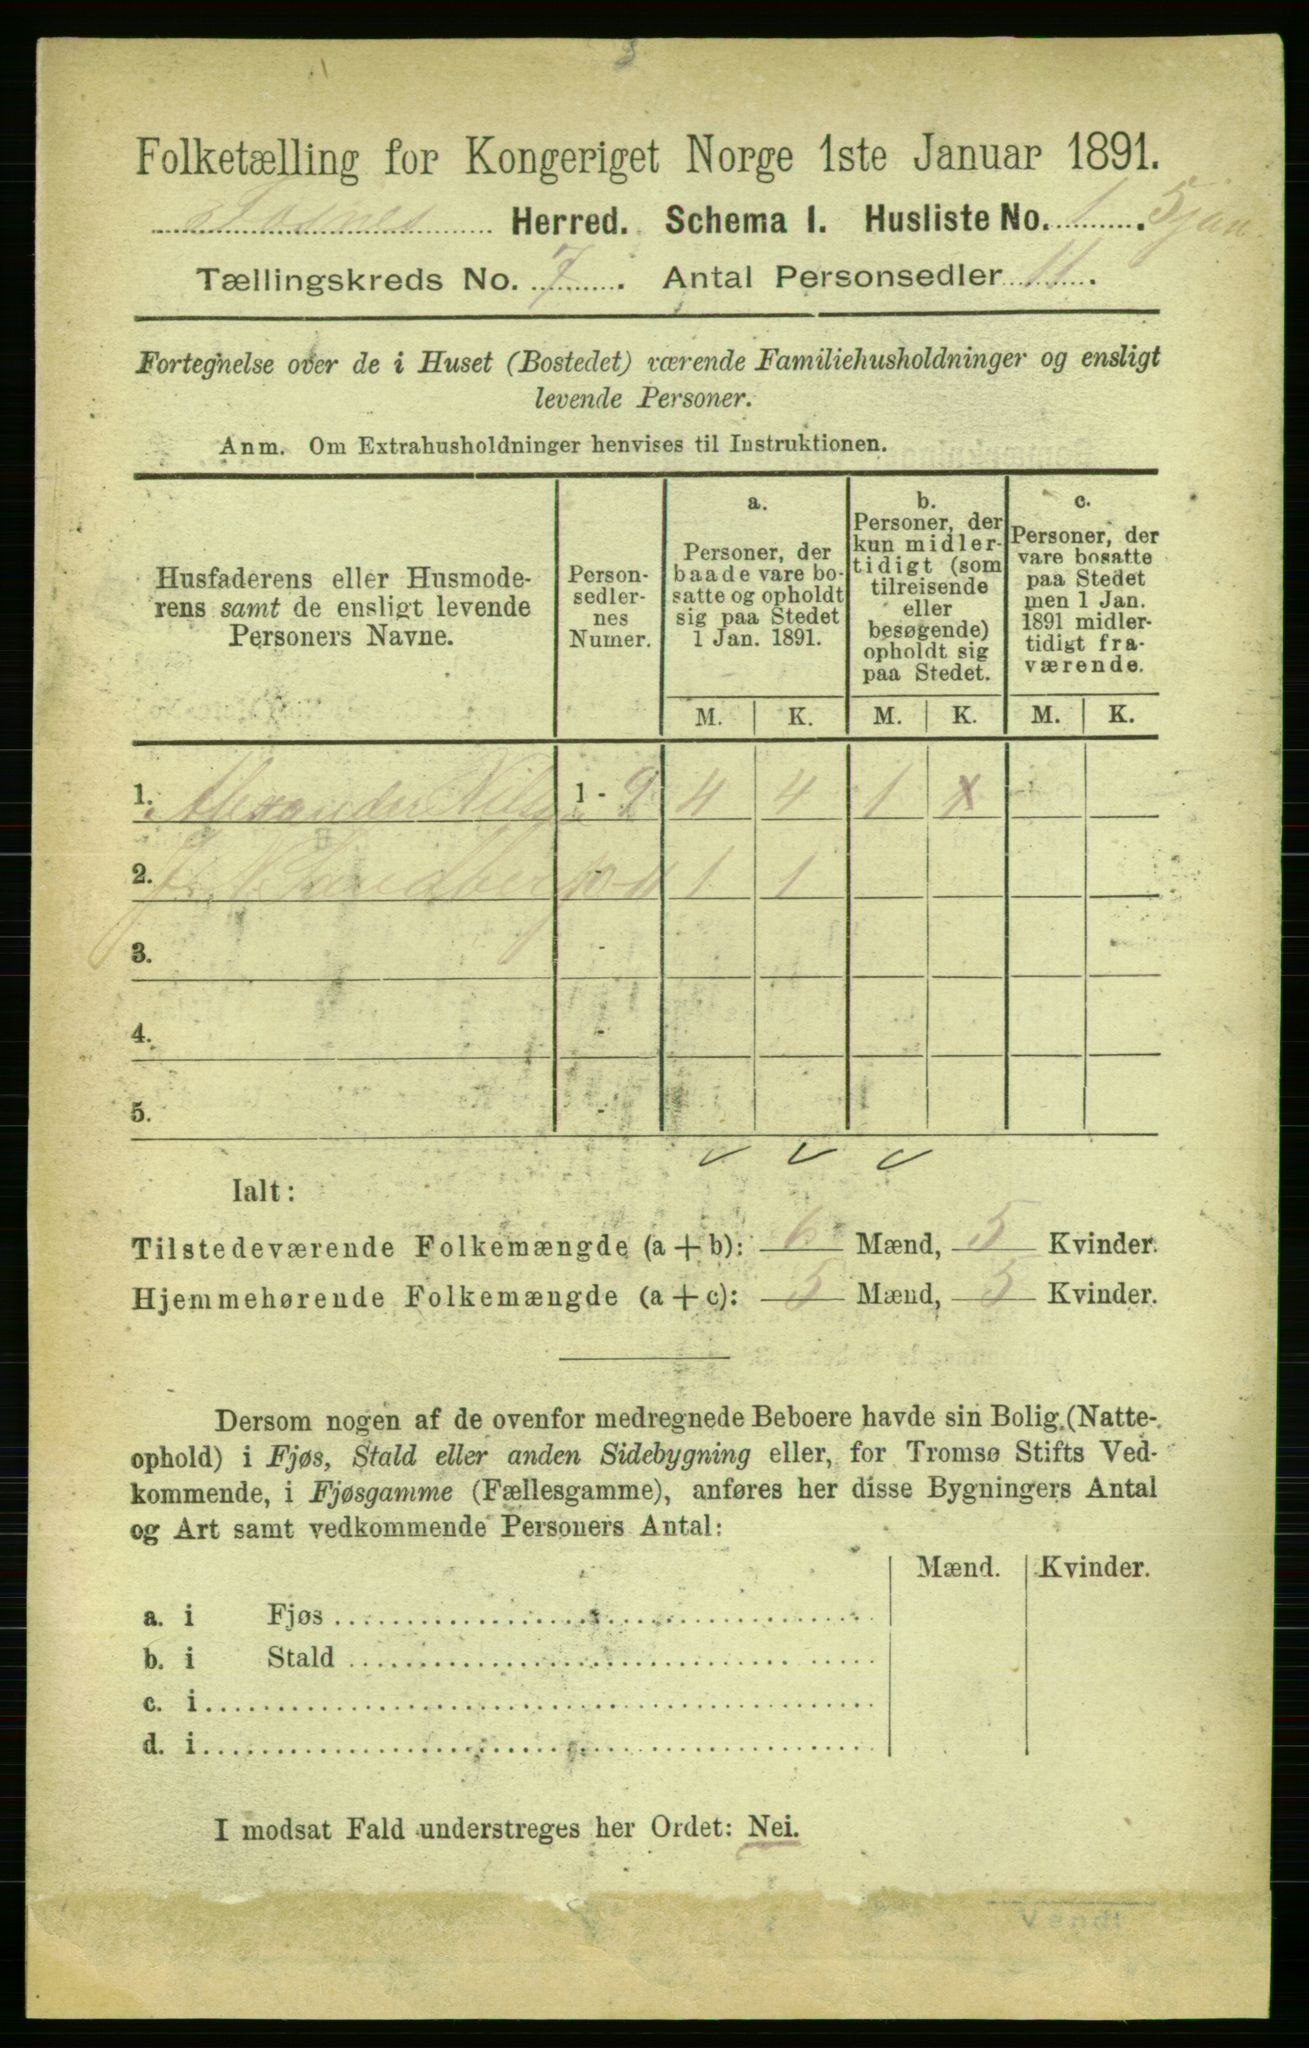 Folketælling for Kongeriget Norge 1ste Januar 1891.
Fosnes Herred. Schema I. Husliste No. 1. 5 jan
Tællingskreds No. 7. Antal Personsedler 11.
Fortegnelse over de i Huset (Bostedet) værende Familiehusholdninger og ensligt
levende Personer.
Anm. Om Extrahusholdninger henvises til Instruktionen.
Husfaderens eller Husmode-
rens samt de ensligt levende
Personers Navne.
Person-
sedler-
nes
Numer.
a.
Personer, der
baade vare bo-
satte og opholdt
sig paa Stedet
1 Jan. 1891.
b.
Personer, der
kun midler-
tidigt (som
tilreisende
eller
besøgende)
opholdt sig
paa Stedet.
c.
Personer, der
vare bosatte
paa Stedet
men 1 Jan.
1891 midler-
tidigt fra-
værende.
M. K. M. K. M. K.
1. Alexander Nils 1 - 9 4 4 1 x
2. J. N. Landberg 10-11 1 1
3. -
4. -
5. -
Ialt:
Tilstedeværende Folkemængde (a+b): 6 Mænd, 5 Kvinder.
Hjemmehørende Folkemængde (a+c): 5 Mænd, 5 Kvinder.
Dersom nogen af de ovenfor medregnede Beboere havde sin Bolig (Natte-
ophold) i Fjøs, Stald eller anden Sidebygning eller, for Tromsø Stifts Ved-
kommende, i Fjøsgamme (Fællesgamme), anføres her disse Bygningers Antal
og Art samt vedkommende Personers Antal:
Mænd. Kvinder.
a. i Fjøs
b. i Stald
c. i
d. i
I modsat Fald understreges her Ordet: Nei.
Vend!